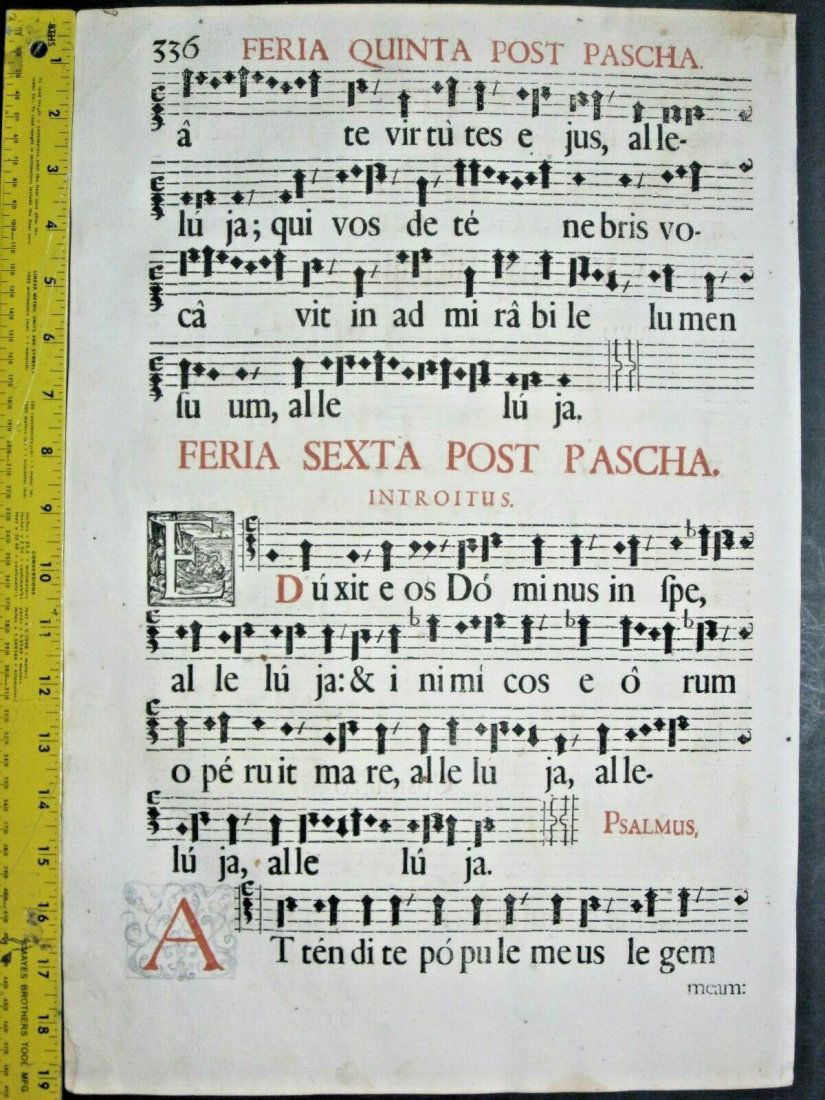 336 FERIA QUINTA POST PASCHA.
â te virtù tes e jus, al le-
lú ja; qui vos de té ne bris vo-
câ vit in ad mi râ bi le lu men
ſu um, al le lú ja.
FERIA SEXTA POST PASCHA.
INTROITUS.
E
D ú xit e os Dó mi nus in ſpe,
al le lú ja: & i ni mí cos e ô rum
o pé ru it ma re, al le lu ja, al le-
lú ja, al le lú ja.
PSALMUS,
A T tén di te pó pu le me us le gem
meam:
8THS
1
2
3
4
5
6
7
8
9
10
11
12
13
14
15
16
17
18
19
CONVERSIONS
MAYES BROTHERS TOOL MFG